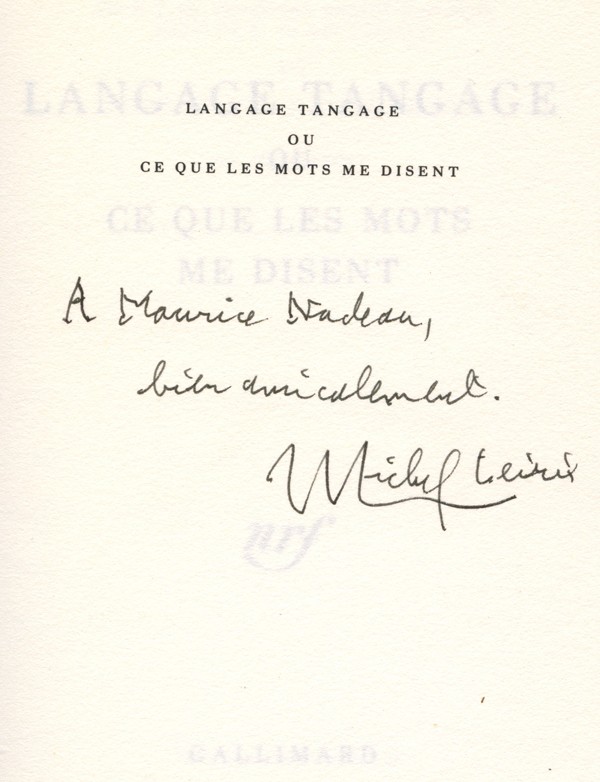 LANGAGE TANGAGE
OU
CE QUE LES MOTS ME DISENT
A Maurice Nadeau,
bien amicalement.
Michel Leiris
LANGAGE TANGAGE
OU
CE QUE LES MOTS
ME DISENT
nrf
GALLIMARD